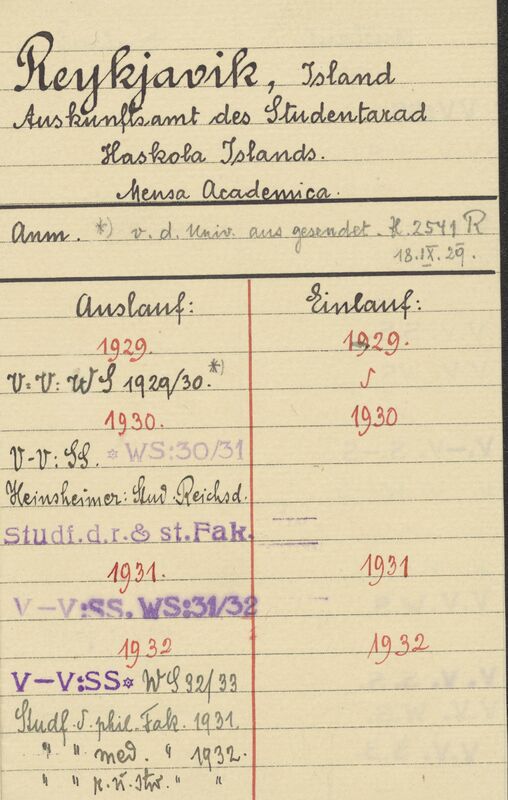 Reykjavik, Island
Auskunftsamt des Studentarad
Haskola Islands.
Mensa Academica.
Anm. *) v. d. Univ. aus gesendet. K. 2541 R
18.IX.29.
Auslauf: Einlauf:
1929. 1929.
V=V: WS 1929/30.*)
1930. 1930
V-V: SS. * WS:30/31
Heinsheimer: Stud. Reichsd.
Studf.d.r.& st.Fak.
1931. 1931
V-V:SS. WS:31/32
1932 1932
V-V:SS* WS 32/33
Studf. d. phil. Fak. 1931
" " med. " 1932.
" " " "